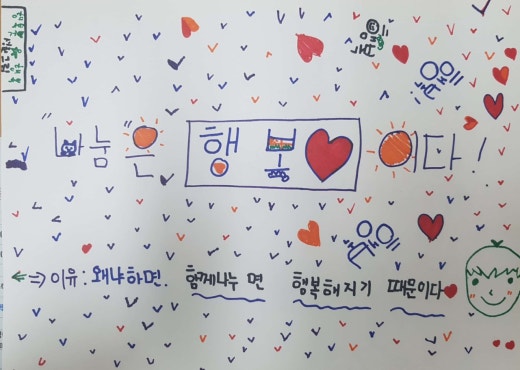 행복
나눔은 행복이다!
이유: 왜냐하면. 함께나누면 행복해지기 때문이다